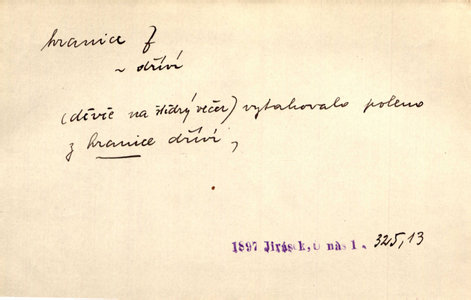 hranice f
~ dříví
(děvče na štědrý večer) vytahovalo poleno
z hranice dříví,
1897 Jirásek, U nás 1. 325,13